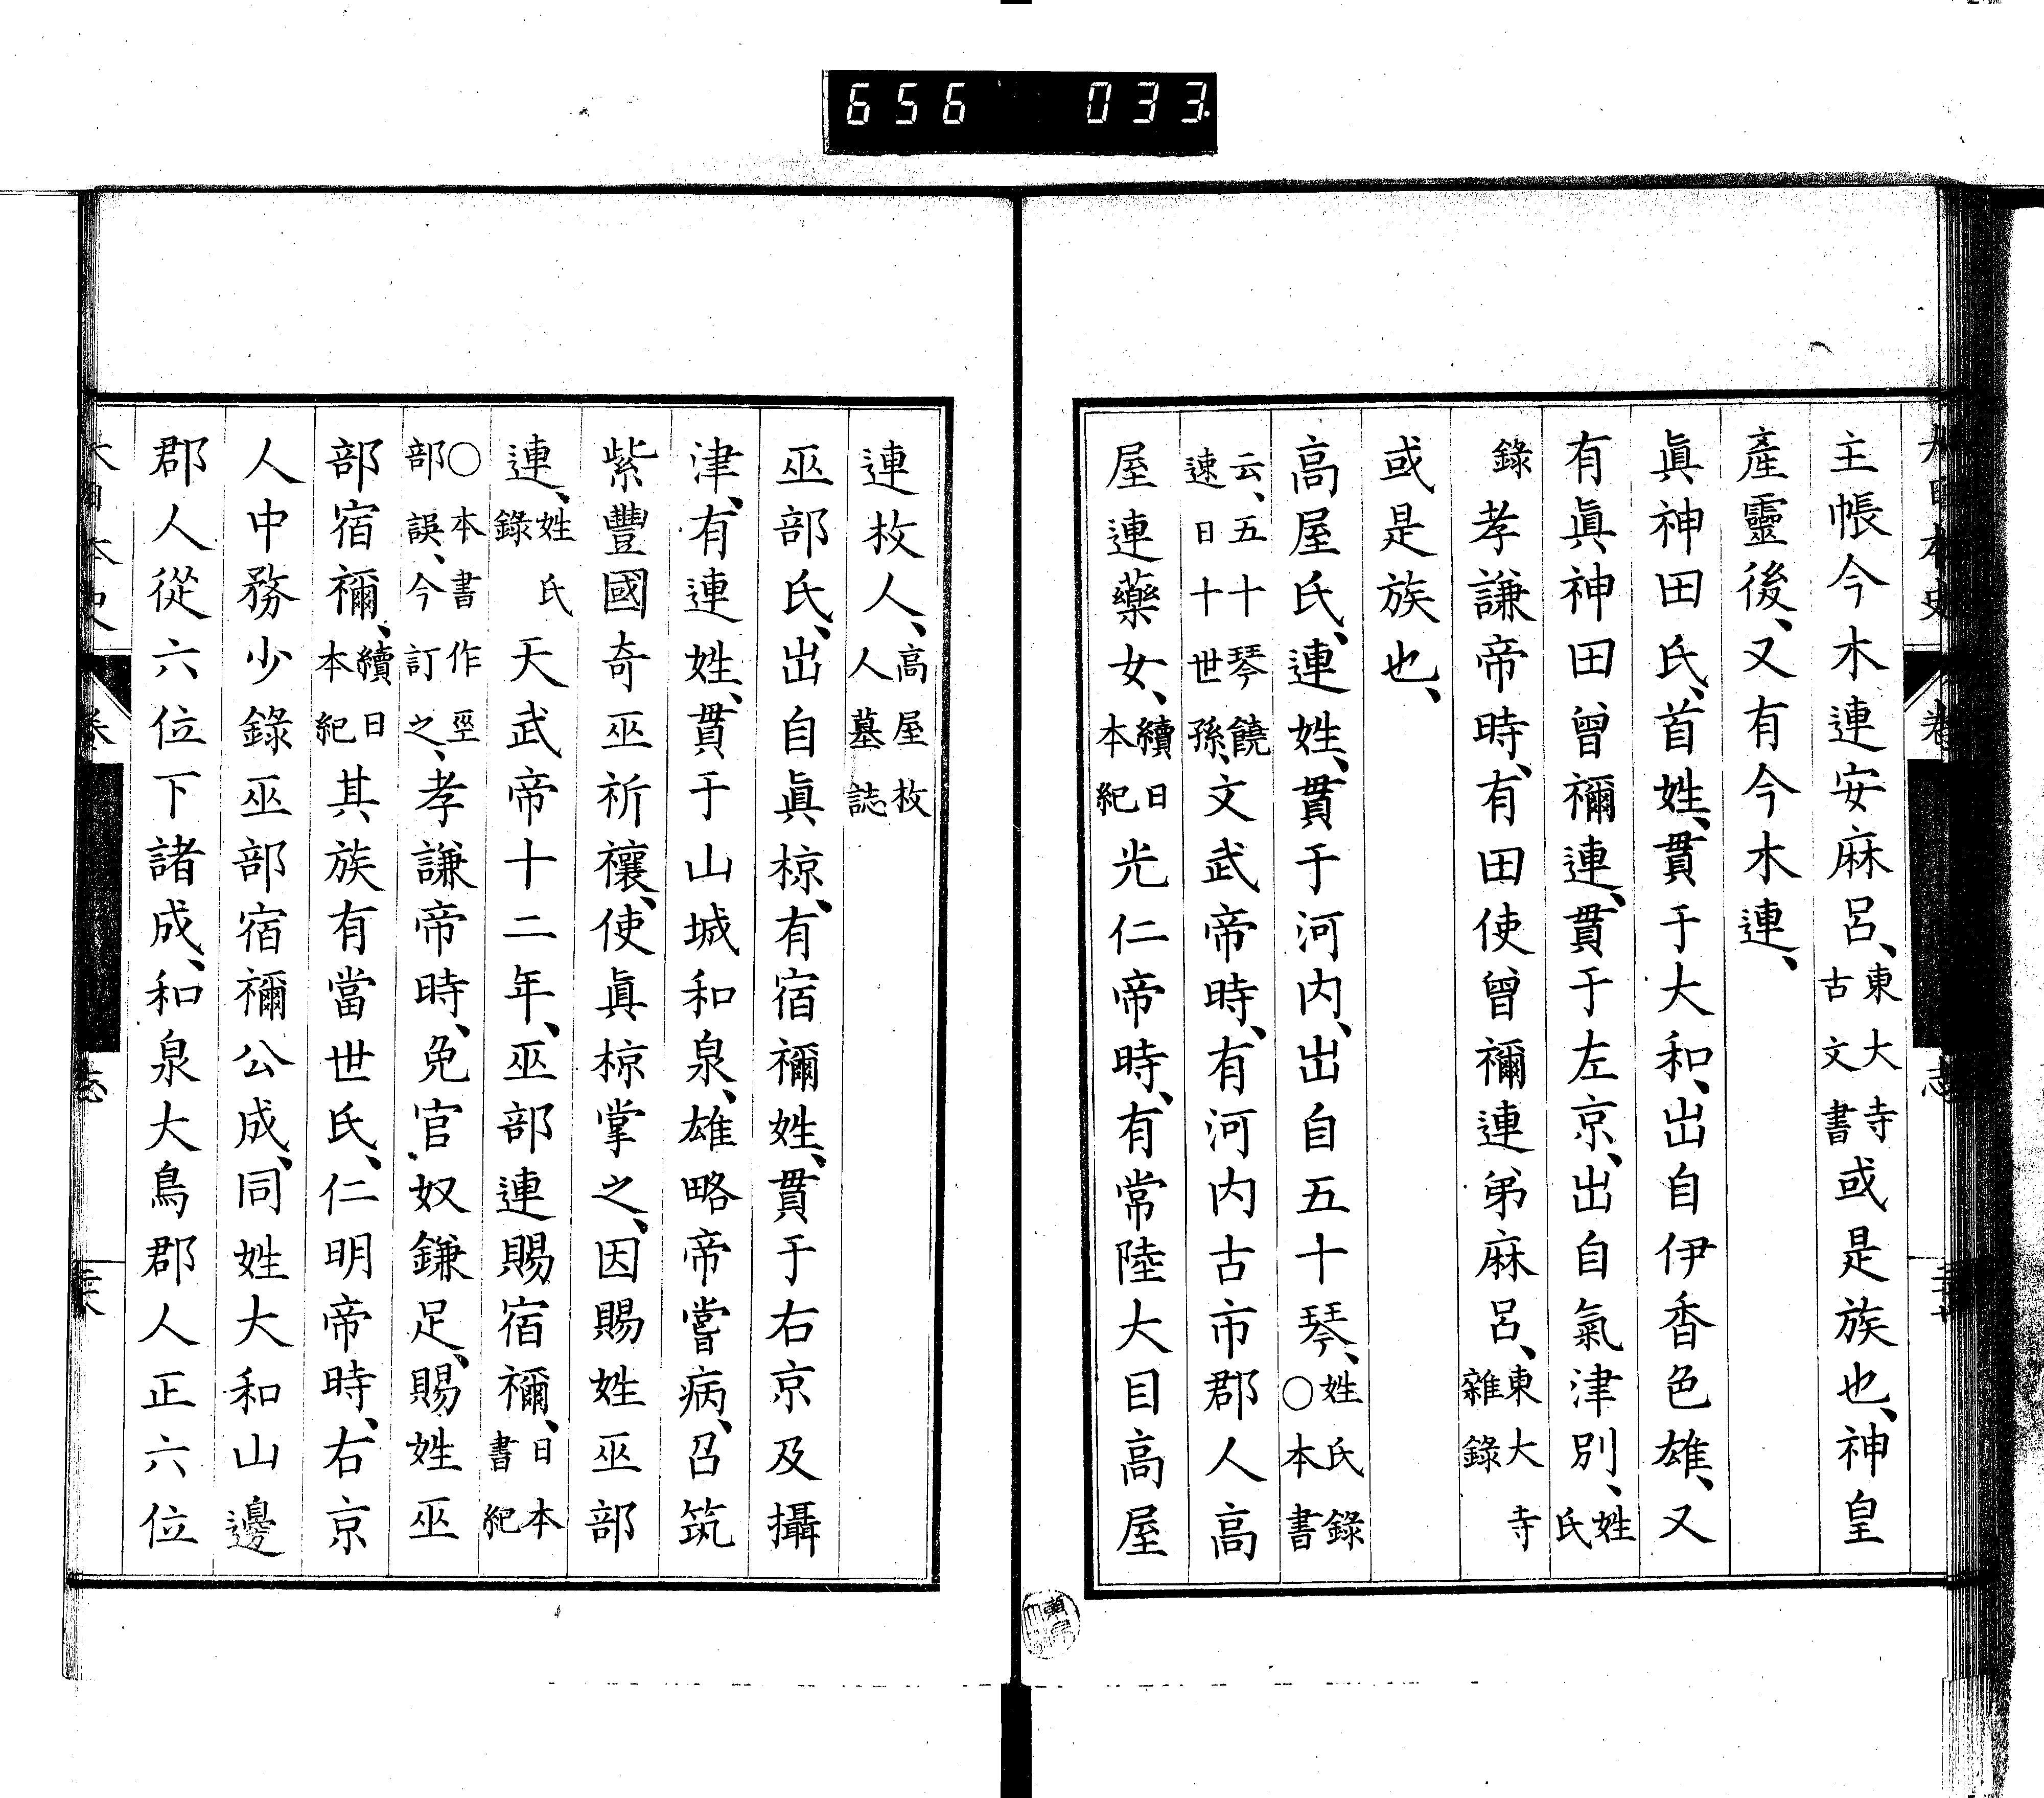 656 033
主帳今木連安麻呂、東大寺古文書或是族也、神皇
產靈後、又有今木連、
眞神田氏、首姓、貫于大和、出自伊香色雄、又
有眞神田曾禰連、貫于左京、出自氣津別、姓氏
錄孝謙帝時、有田使曾禰連弟麻呂、東大寺雜錄
或是族也、
高屋氏、連姓、貫于河內、出自五十琴、姓氏錄○本書
云、五十琴饒速日十世孫、文武帝時、有河內古市郡人高
屋連藥女、續日本紀光仁帝時、有常陸大目高屋
連枚人、高屋枚人墓誌
巫部氏、出自眞椋、有宿禰姓、貫于右京及攝
津、有連姓、貫于山城和泉、雄略帝嘗病、召筑
紫豐國奇巫祈禳、使眞椋掌之、因賜姓巫部
連、姓氏錄天武帝十二年、巫部連賜宿禰、日本書紀
○本書作巠部誤、今訂之、孝謙帝時、免官奴鎌足、賜姓巫
部宿禰、續日本紀其族有當世氏、仁明帝時、右京
人中務少錄巫部宿禰公成、同姓大和山邊
郡人從六位下諸成、和泉大鳥郡人正六位
大日本史 卷 志